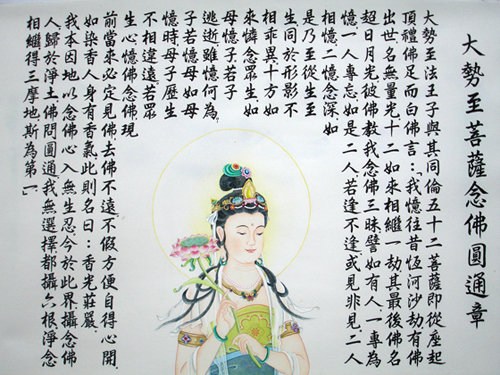 大勢至菩薩念佛圓通章
大勢至法王子與其同倫五十二菩薩即從座起
頂禮佛足而白佛言：我憶往昔恆河沙劫有佛
出世名無量光十二如來相繼一劫其最後佛名
超日月光彼佛教我念佛三昧譬如有人，一專為
憶，一人專忘如是二人，若逢不逢或見非見，二人
相憶，二憶念深如
是乃至從生至
生同於形影不
相乖異十方如
來憐念眾生，如
母憶子，若子
逃逝，雖憶何為，
子若憶母，如母
憶時母子歷生
不相違遠若眾
生心憶佛念佛現
前當來必定見佛去佛不遠不假方便自得心開，
如染香人身有香氣此則名曰：香光莊嚴，
我本因地以念佛心入無生忍今於此界攝念佛
人歸於淨土，佛問圓通我無選擇都攝六根淨念
相繼得三摩地斯為第一